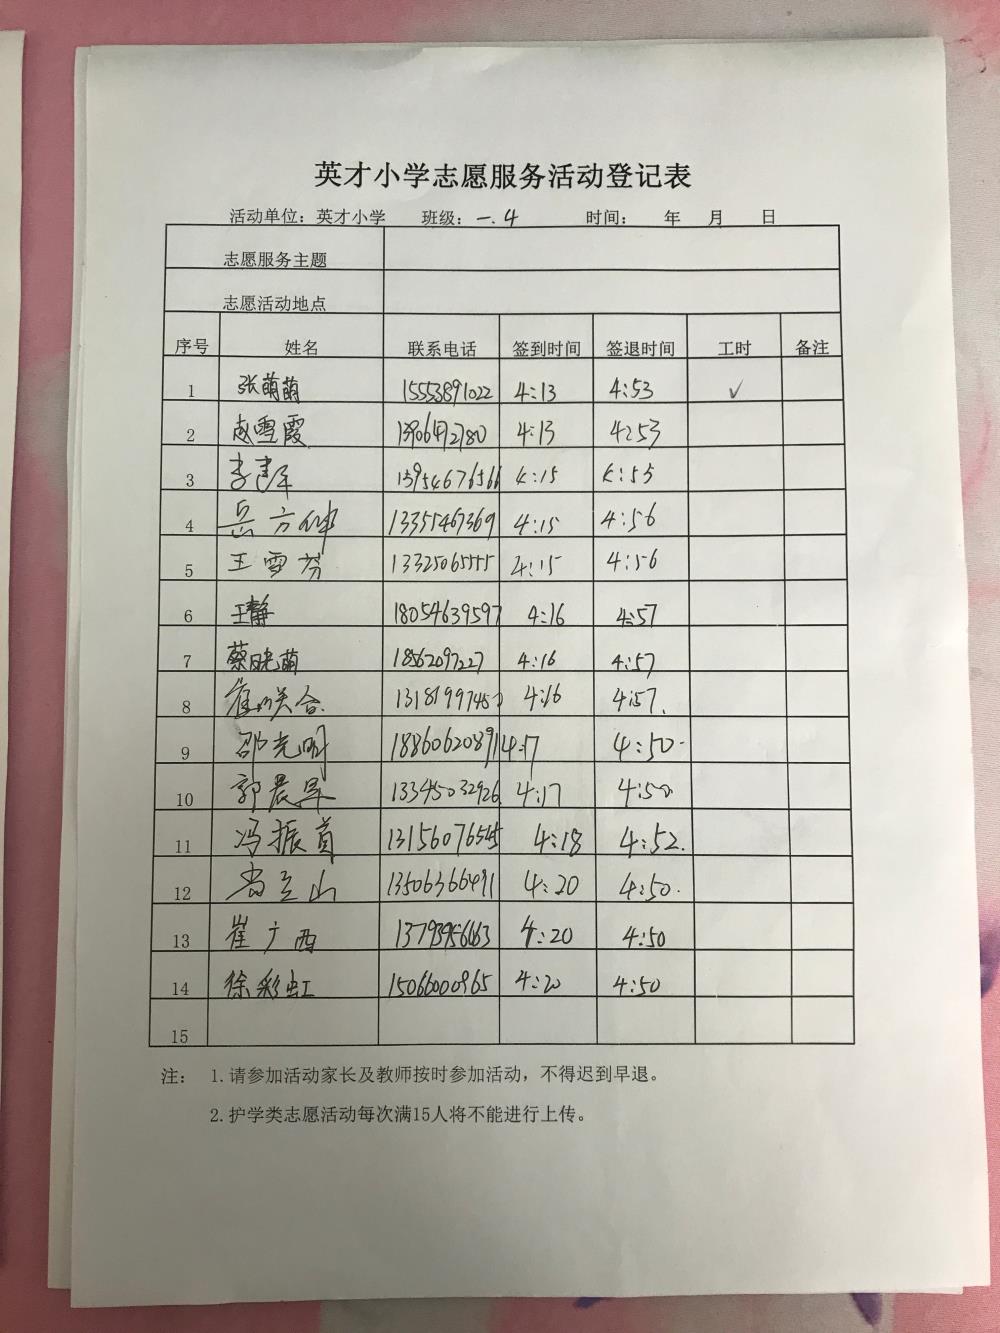 英才小学志愿服务活动登记表
活动单位：英才小学 班级：一.4 时间： 年 月 日
志愿服务主题
志愿活动地点
序号 姓名 联系电话 签到时间 签退时间 工时 备注
1 张萌萌 15553891022 4:13 4:53 ✓
2 赵雪霞 13906472780 4:13 4:53
3 13954676566 4:15 4:53
4 岳方伟 13355467369 4:15 4:56
5 王雪芬 13325065555 4:15 4:56
6 王静 18054639597 4:16 4:57
7 蔡晓萌 18562097227 4:16 4:57
8 崔联合. 4:16 4:57.
9 邵光明 18860620891 4:17 4:50.
10 郭晨昇 13345032926 4:17 4:50
11 冯振 4:18 4:52.
12 尚立山 13506366491 4:20 4:50.
13 崔广西 13793956663 4:20 4:50
14 徐彩虹 15066000865 4:20 4:50
15
注： 1.请参加活动家长及教师按时参加活动，不得迟到早退。
2.护学类志愿活动每次满15人将不能进行上传。